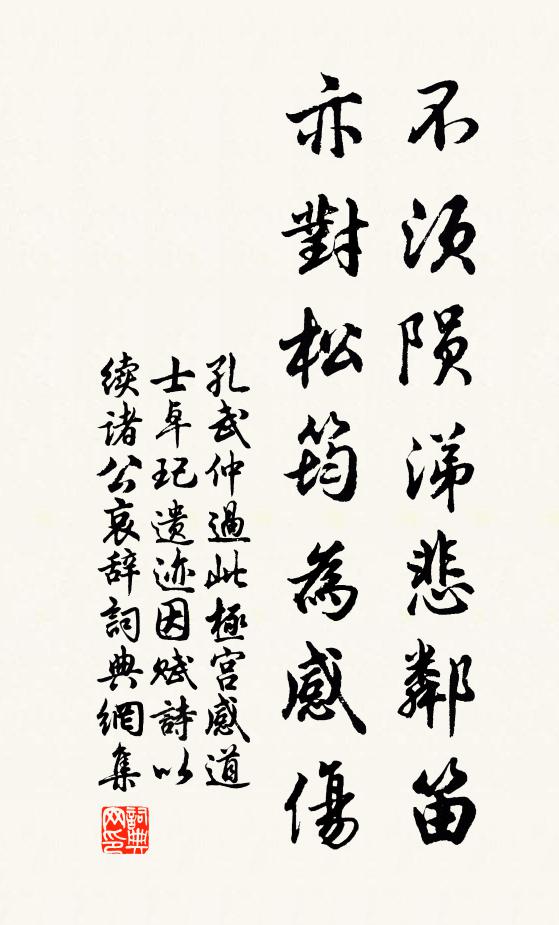 不須隕涕悲鄰笛
亦對松筠為感傷
孔武仲過此極宮感道
士卓玘遺迹因赋詩以
续诸公哀辞詞典網集
詞典
网印